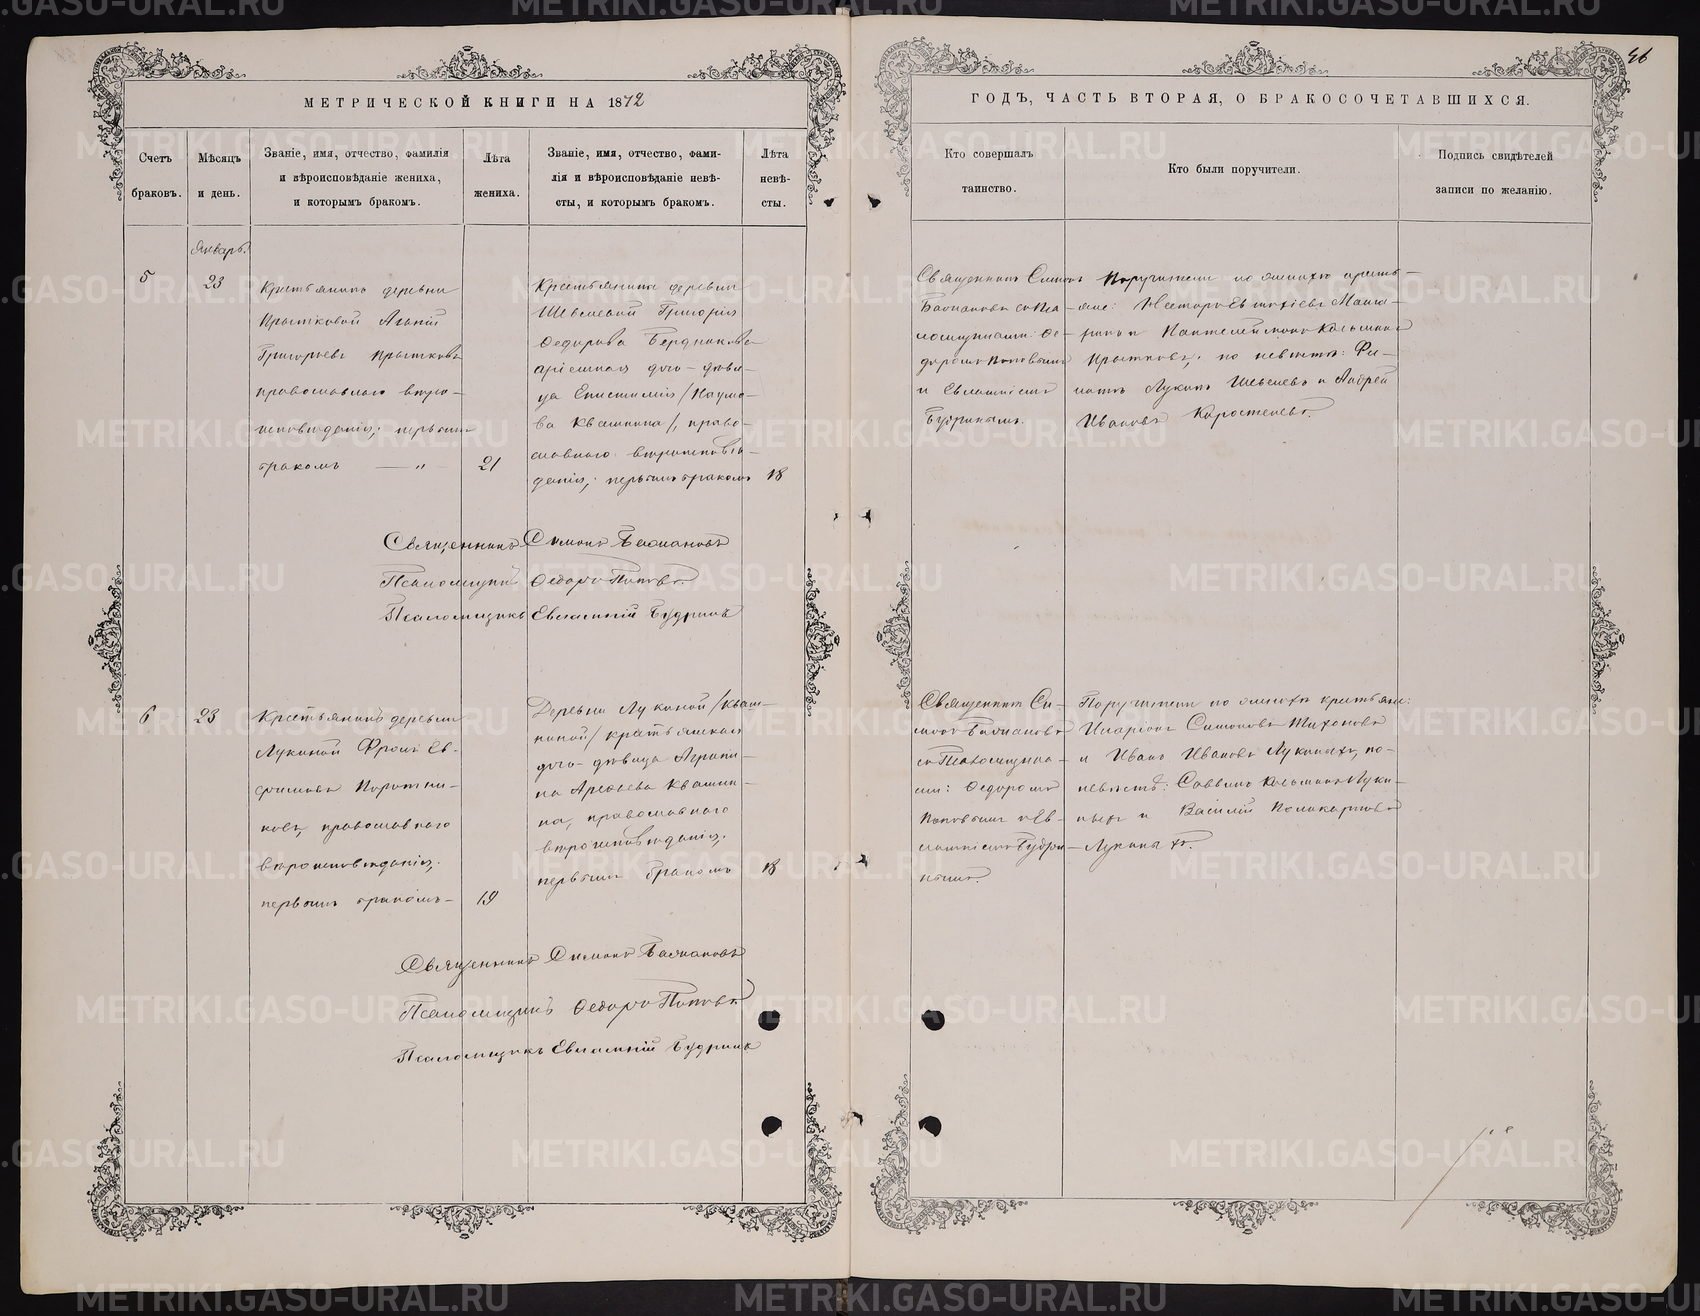 МЕТРИЧЕСКОЙ КНИГИ НА 1872
Счетъ браковъ.
Мѣсяцъ и день.
Званіе, имя, отчество, фамилія
и вѣроисповѣданіе жениха,
и которымъ бракомъ.
Лѣта жениха.
Званіе, имя, отчество, фами-
лія и вѣроисповѣданіе невѣ-
сты, и которымъ бракомъ.
Лѣта
невѣ-
сты.
Январь.
5
23
Крестьянинъ деревни
Прытковой
Григорьевъ Прытковъ
православнаго вѣро-
исповѣданія, первымъ
бракомъ — „
21
Крестьянина деревни
Шевелевой Григорія
Федорова Бердникова
пріемная дочь-дѣви-
ца Епистимія /Наумо-
ва Квашнина/, право-
славнаго вѣроисповѣ-
данія, первымъ бракомъ
18
Священникъ Симонъ
Псаломщикъ Федоръ Поповъ
Псаломщикъ Евлампій Будринъ
6
23
Крестьянинъ деревни
Лукиной Фролъ Ев-
фимовъ Коротки-
новъ, православнаго
вѣроисповѣданія,
первымъ бракомъ —
19
Деревни Лукиной /Кваш-
ниной/ крестьянская
дочь-дѣвица Агрипи-
на Арефьева Квашни-
на, православнаго
вѣроисповѣданія,
первымъ бракомъ
18
Священникъ Симонъ
Псаломщикъ Федоръ Поповъ
Псаломщикъ Евлампій Будринъ
46
ГОДЪ, ЧАСТЬ ВТОРАЯ, О БРАКОСОЧЕТАВШИХСЯ.
Кто совершалъ
таинство.
Кто были поручители.
Подпись свидѣтелей
записи по желанію.
Священникъ Симонъ
съ Пса-
ломщиками: Фе-
доромъ Поповымъ
и Евлампіемъ
Будринымъ.
Поручители по женихѣ кресть-
яне: Несторъ
и Пантелеймонъ Козьминъ
Прытковъ, по невѣстѣ: Фи-
латъ Лукинъ Шевелевъ и Андрей
Ивановъ Коростелевъ.
Священникъ Си-
монъ
съ Псаломщика-
ми: Федоромъ
Поповымъ и Ев-
лампіемъ Будри-
нымъ.
Поручители по женихѣ крестьяне:
Иларіонъ Симоновъ Тихоновъ
и Иванъ Ивановъ Лукиныхъ, по-
невѣстѣ: Саввинъ Козьминъ Луки-
ныхъ и Василій Поликарповъ
Лукиныхъ.
METRIKI.GASO-URAL.RU